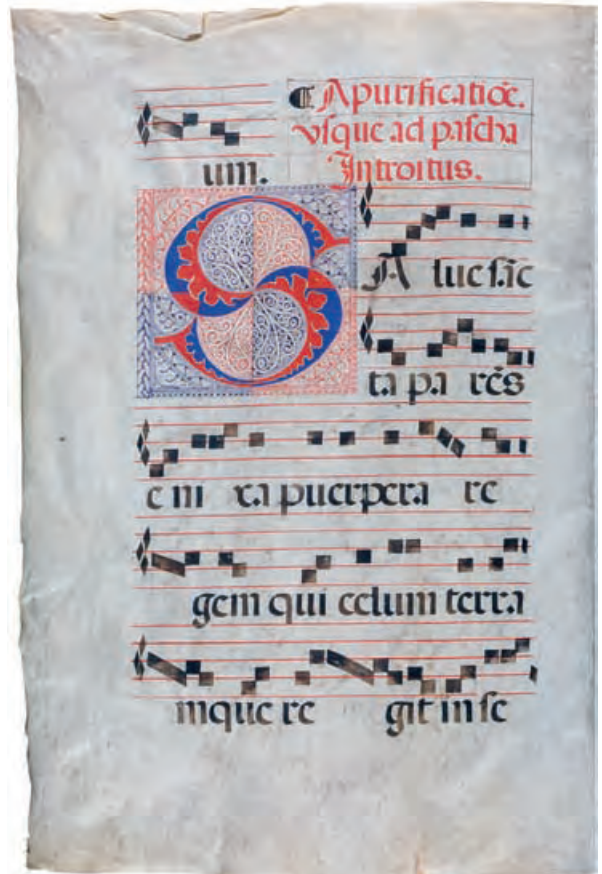 um.
A purificatiōe.
vsque ad pascha
Introitus.
SA lue sāc
ta pa rēs
e ni xa puerpera re
gem qui celum terra
mque re git in se